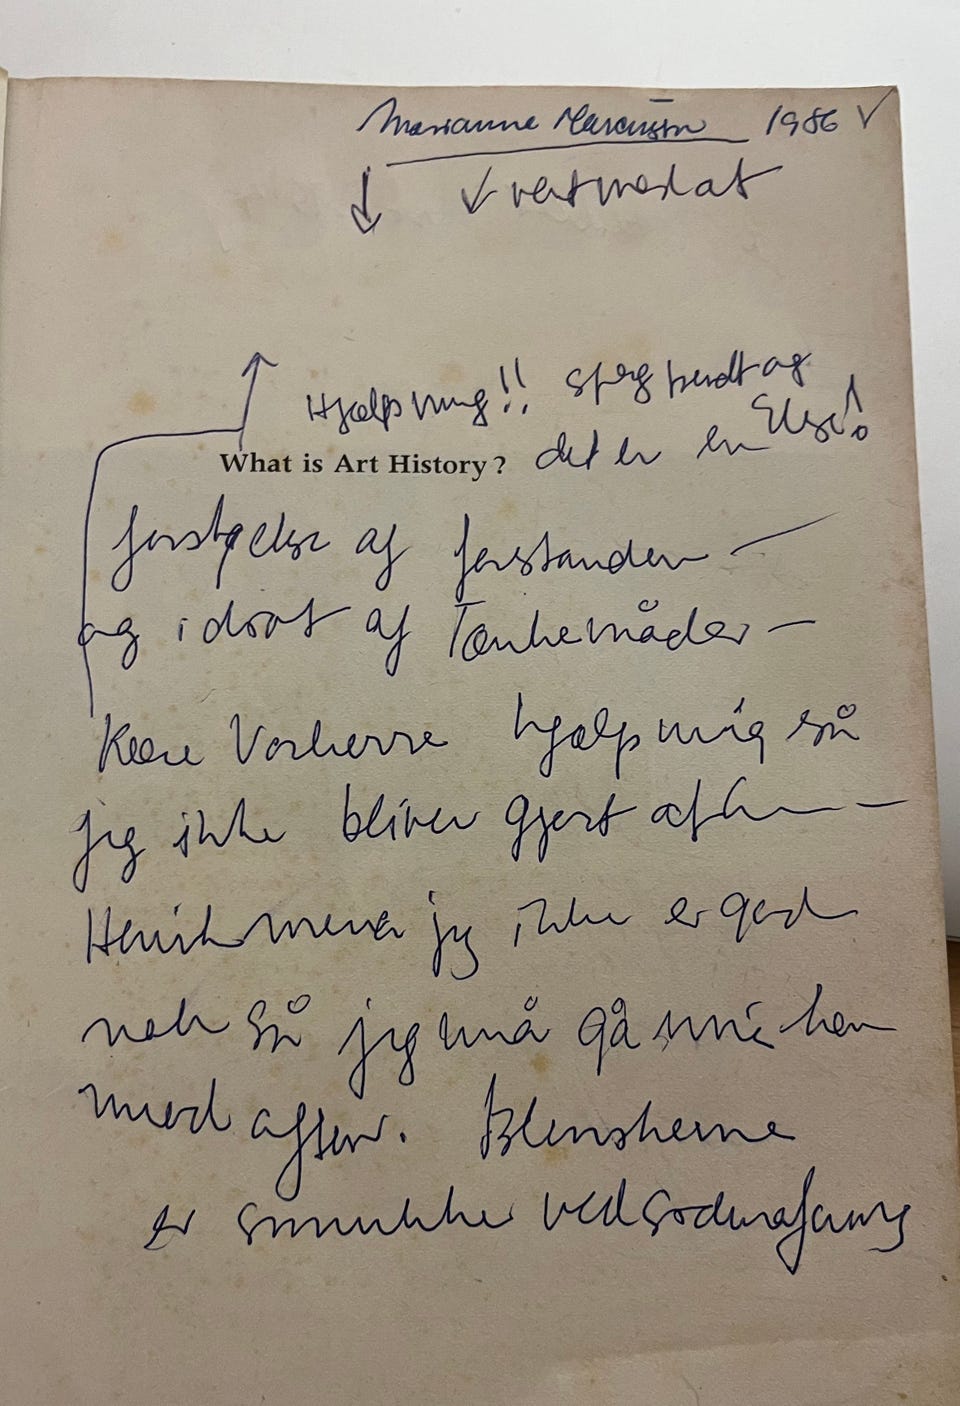 Marianne 1986 ✓
↓ ✓ vent med at
Hjælp mig!! Spørg og
Else!
What is Art History? det er en
forstyrrelse af forstanden —
og idræt af Tænkemåder —
Kære Vorherre hjælp mig så
jeg ikke bliver gjort af
Henrik mener jeg ikke er god
nok så jeg må gå min
med aften. Blomsterne
er smukke ved